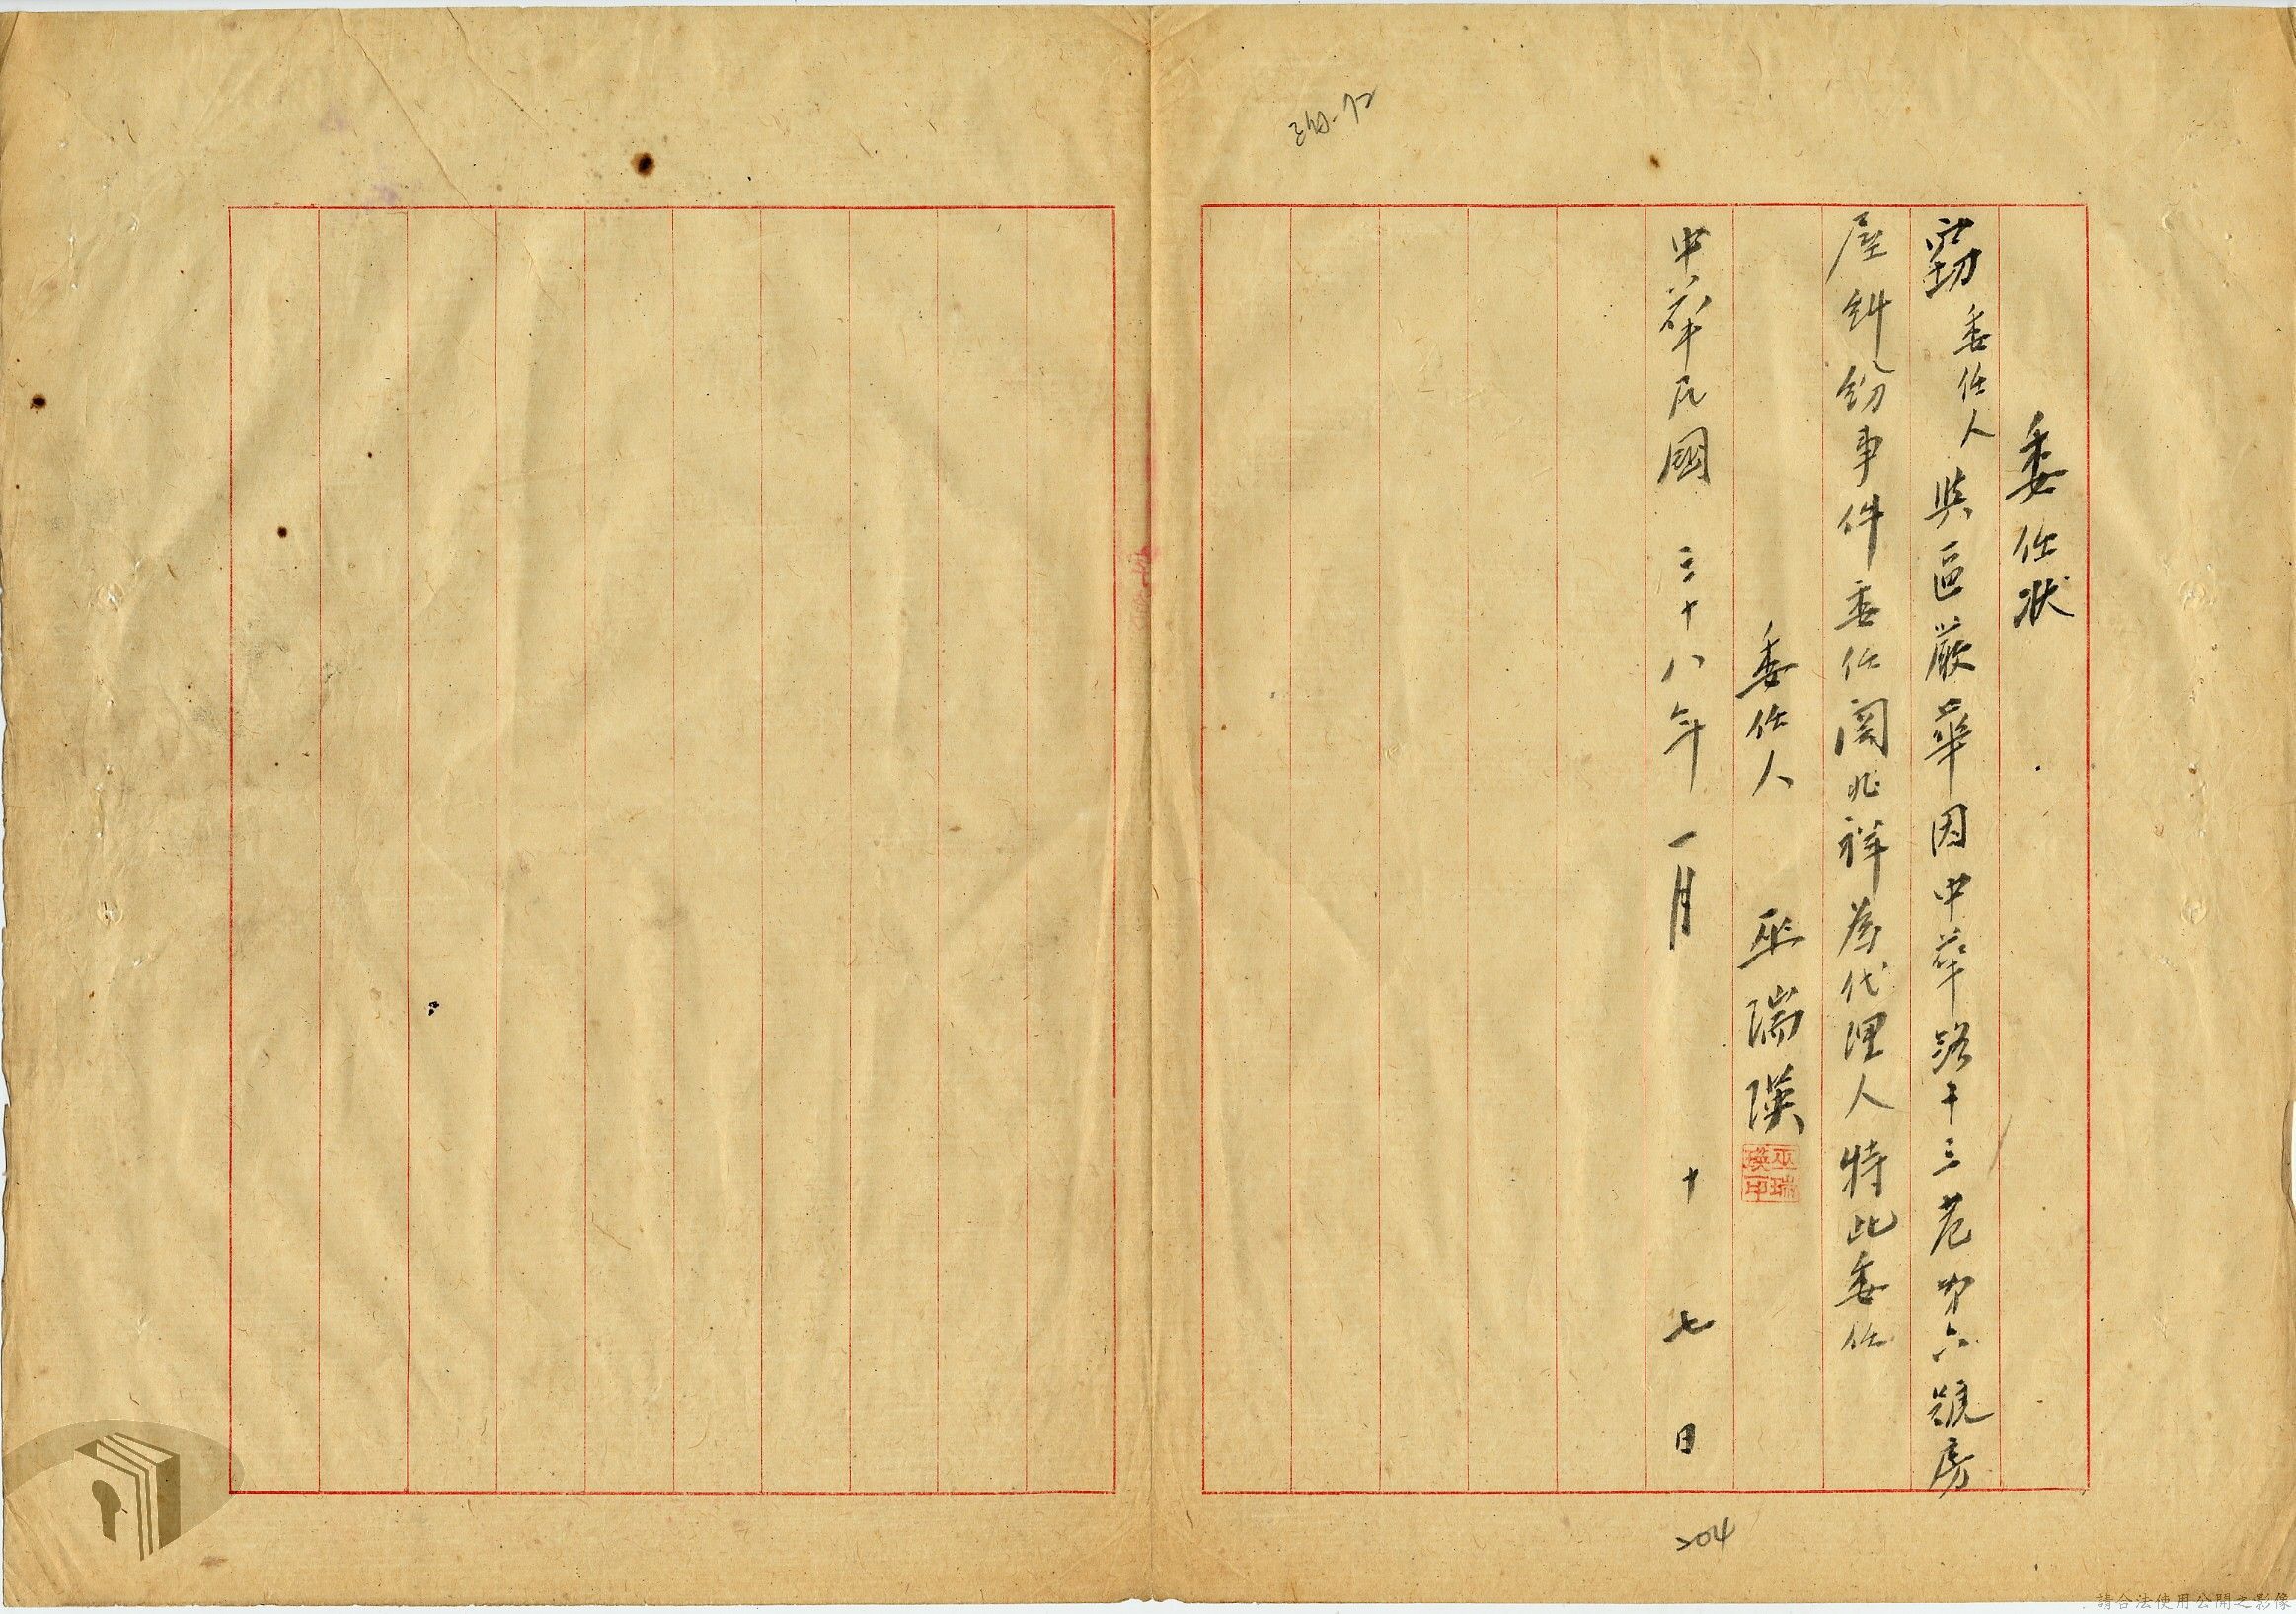 委任狀
竊委任人與區嚴華因中華路十三巷第六號房
屋糾紛事件委任闕兆祥為代理人特此委任
委任人 巫瑞瑛
巫瑞瑛印
中華民國三十八年一月十七日
204
請合法使用公開之影像